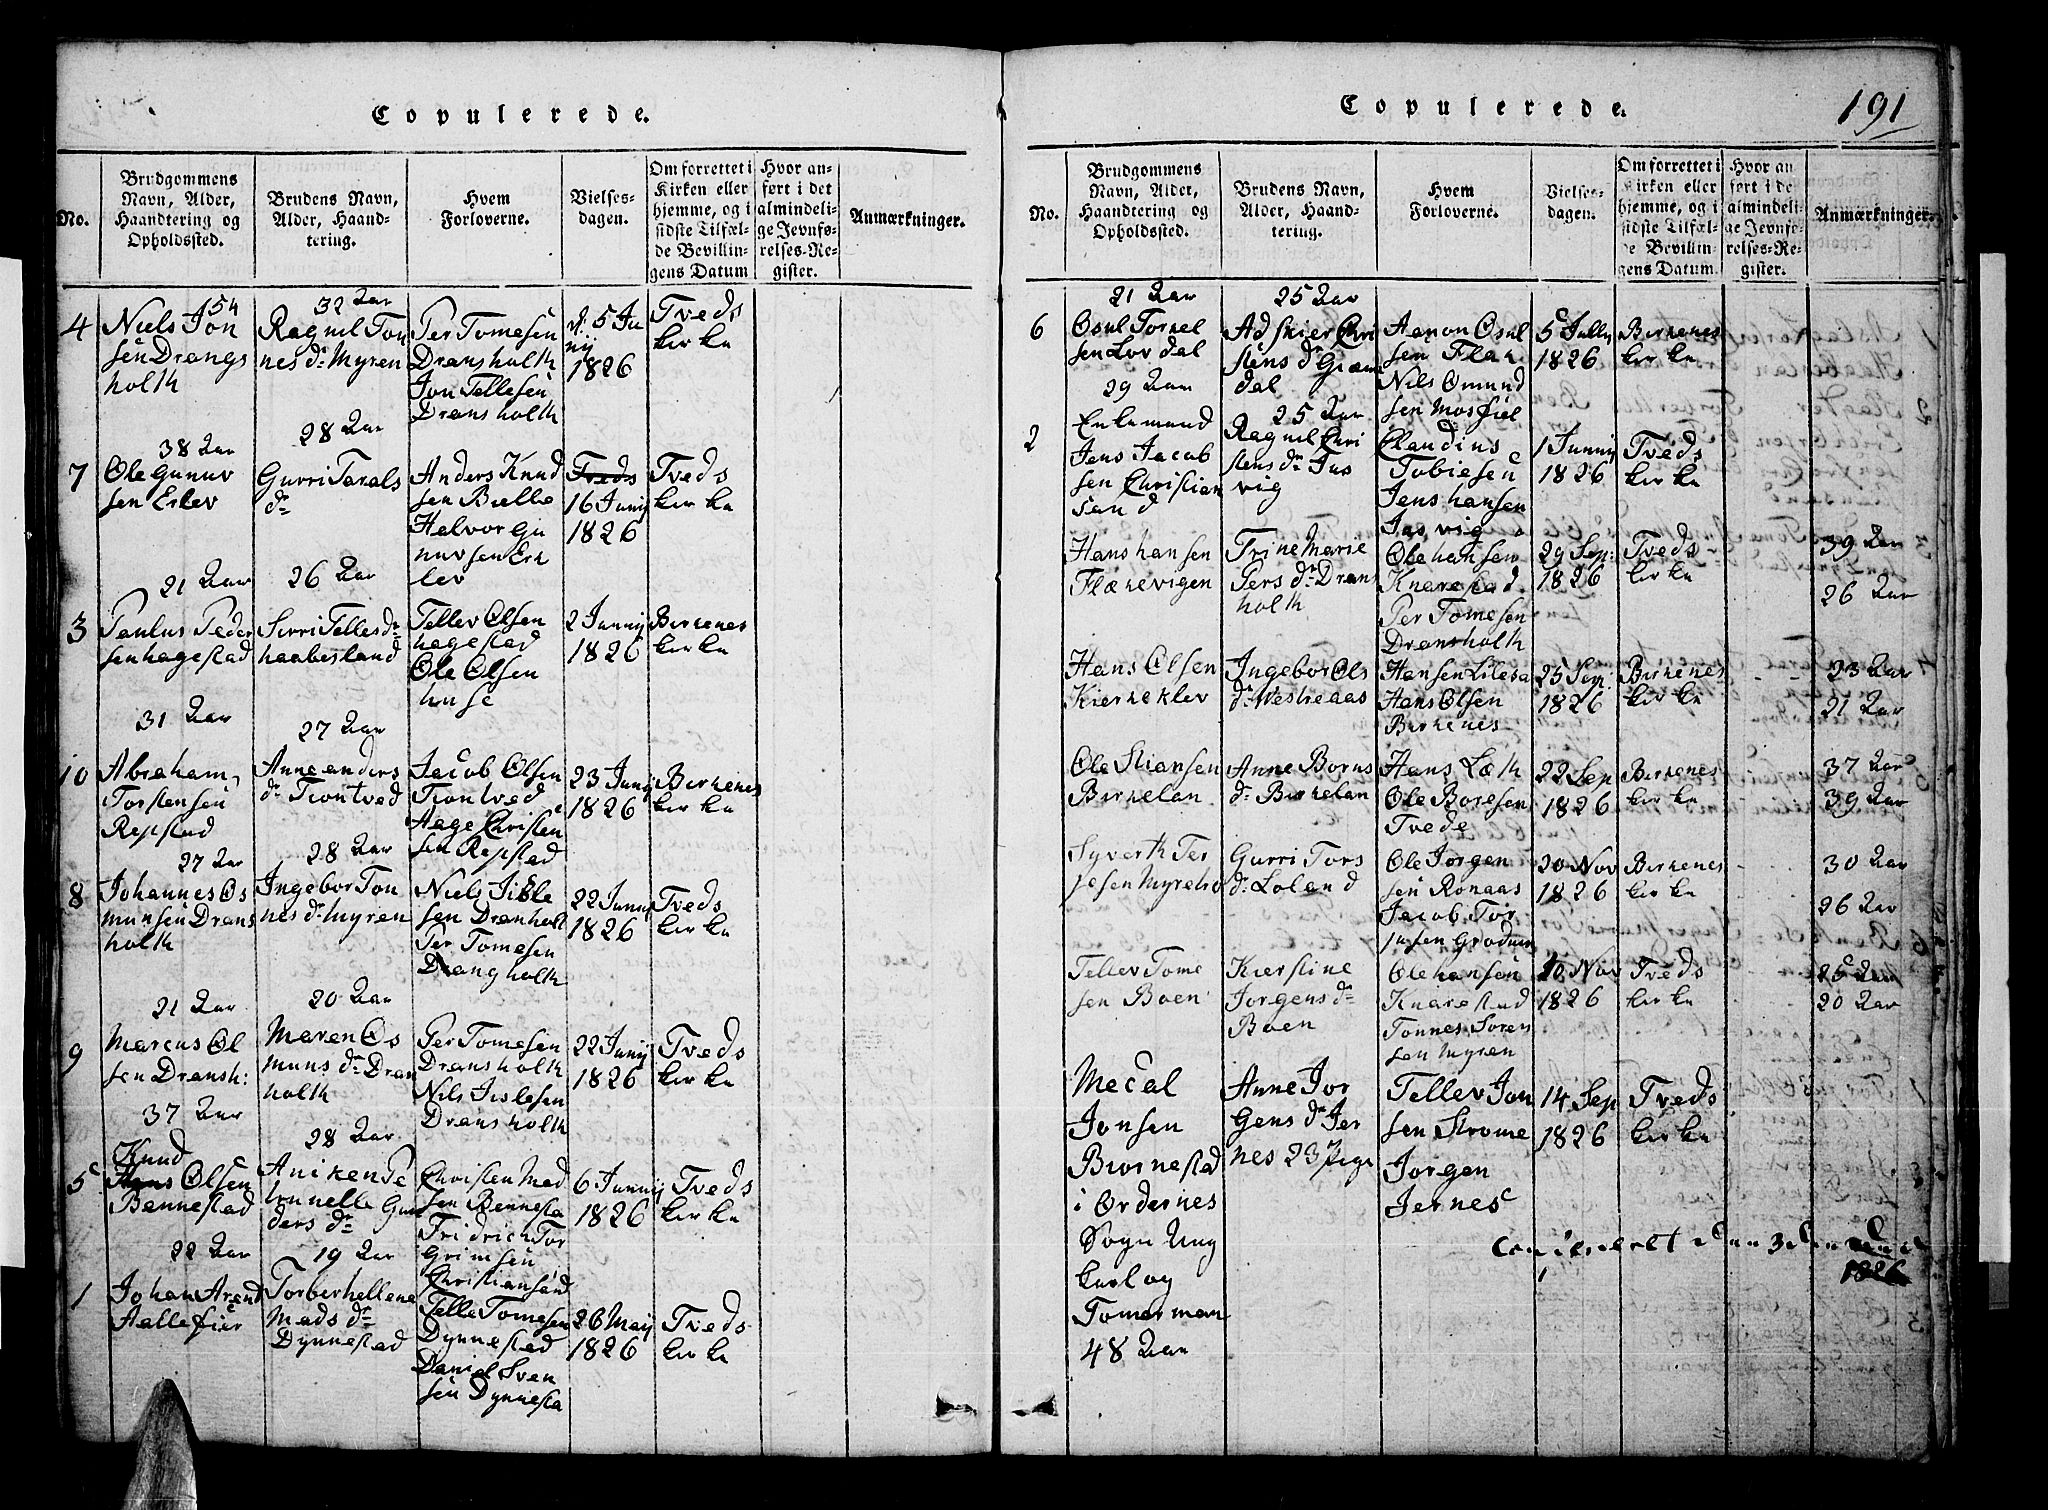 Copulerede.
No.
Brudgommens
Navn, Alder,
Haandtering og
Opholdssted.
Brudens Navn,
Alder, Haand-
tering.
Hvem
Forloverne.
Vielses-
dagen.
Om forrettet i
Kirken eller
hjemme, og i
sidste Tilfæl-
de Bevillin-
gens Datum
Hvor an-
ført i det
almindeli-
ge Jevnfø-
relses-Re-
gister.
Anmærkninger.
4
54
Niels Jon
sen Drangs
holth
32 Aar
Ragnil Ton
nes dr Myren
Per Tomesen
Dransholth
Jon Tellesen
Dransholth
d. 5 Ju
nij
1826
Tveds
kirke
38 Aar
7
Ole Gunuv
sen Erlev
28 Aar
Gurri Tarals
dr
Anders Knud
sen Bielle
Halvor Gu
nuvsen Erk
lev
Tveds
16 Junij
1826
Tveds
kirke
21 Aar
3
Paulus Peder
sen hagestad
26 Aar
Sirri Telles dr
haabesland
Tellev Olsen
hagestad
Ole Olsen
huse
2 Junnij
1826
Birkenes
kirke
31 Aar
10
Abraham
Torstensen
Repstad
27 Aar
Anne anders
dr Tiontved
Jacob Olsen
Tiontved
Aage Christen
sen Repstad
23 Junij
1826
Birkenes
kirke
27 Aar
8
Johannes Os
munsen Drans
holth
28 Aar
Ingebor Ton
nes dr Myren
Niels Jisle
sen Dranholt
Per Tomesen
Drangholth
22 Junnij
1826
Tveds
kirke
21 Aar
9
Marcus Ol
sen Dransh:
20 Aar
Maren Os
muns dr Dran
holth
Per Tomesen
Dransholth
Nils Jislesen
Dransholth
22 Junij
1826
Tveds
kirke
37 Aar
5
Knud
Hans Olsen
Bennestad
28 Aar
Aniken Pe
tronelle Gun
ders dr
Christen Mad
sen Bennesta
Fridrich Tor
Grimsen
Christiansand
6 Junnij
1826
Tveds
kirke
22 Aar
1
Johan Arend
Aallefier
19 Aar
Torber hellene
Mads dr
Dynnestad
Telle Tomesen
Dynnestad
Daniel Sven
sen Dynnesta
26 Maij
1826
Tveds
kirke
Copulerede.
191
No.
Brudgommens
Navn, Alder,
Haandtering og
Opholdssted.
Brudens Navn,
Alder, Haand-
tering.
Hvem
Forloverne.
Vielses-
dagen.
Om forrettet i
Kirken eller
hjemme, og i
sidste Tilfæl-
de Bevillin-
gens Datum.
Hvor an
ført i de
almindeli-
ge Jevnfø-
relses-Re-
gister.
Anmærkninger.
21 Aar
6
Osul Torkel
sen Lovdal
25 Aar
Adskier Chri
stens dr
dal
Aanon Osul
sen Flak
Nils Omund
sen Mosfiel
5 Julij
1826
Birkenes
kirke
29 Aar
2
Enkemand
Jens Jacob
sen Christian
sand
25 Aar
Ragnil Chri
stens dr Jus
vig
Claudius
Tobiesen
Jens hansen
Jusvig
1 Junnij
1826
Tveds
kirke
Hans hansen
Flækevigen
Trine Marie
Pers dr Drans
holth
Ole hansen
Knarestad
Per Tomesen
Dransholth
29 Sep:
1826
Tveds
kirke
39 Aar
26 Aar
Hans Olsen
Kierkeklev
Ingebor Ols
dr Westreaas
Hansen Lilesa
Hans Olsen
Birkenes
25 Sep:
1826
Birkenes
kirke
23 Aar
21 Aar
Ole Stiansen
Birkelan
Anne Borns
dr Birkelan
Hans Læth
Ole Boresen
Tvede
22 Sep
1826
Birkenes
kirke
37 Aar
39 Aar
Syverth Ter
jesen Myrebo
Gurri Tors
dr Loland
Ole Jorgen
sen Ronaas
Jacob Tor
jusen Grodum
20 Nov
1826
Birkenes
kirke
30 Aar
26 Aar
Tellev Tome
sen Boen
Kierstine
Jorgens dr
Boen
Ole hansen
Knarestad
Tonnes Soren
sen Myren
10 Nov
1826
Tveds
kirke
25 Aar
20 Aar
Mecal
Jonsen
Biornestad
i Ordernes
Sogn Ung
karl og
Tomerman
48 Aar
Anne Jor
Gens dr Jer
nes 23 Pige
Tellev Jon
sen Strome
Jorgen
Jernes
14 Sep
1826
Tveds
kirke
1826